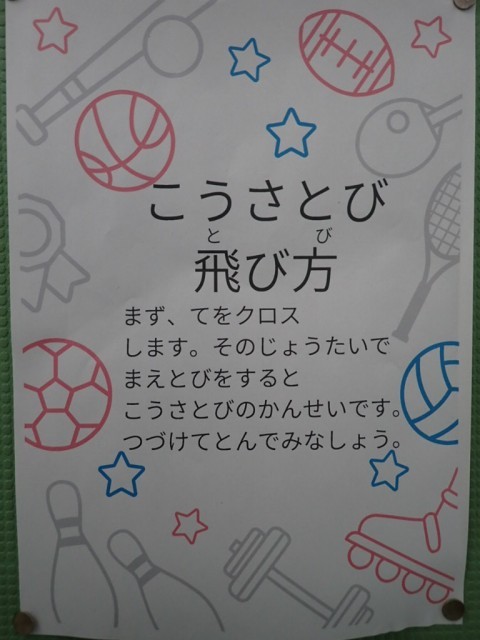 こうさとび
と び
飛び方
まず、てをクロス
します。そのじょうたいで
まえとびをすると
こうさとびのかんせいです。
つづけてとんでみなしょう。